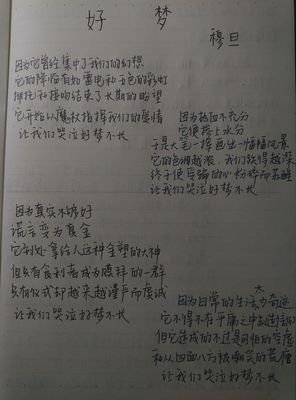 好 梦
穆旦
因为它曾经集中了我们的幻想
它的降临有如雷电和五色的彩虹
拥抱和接吻结束了长期的盼望
它开始以魔杖指挥我们的爱情
让我们哭泣好梦不长
因为热血不充分
它便掺上水分
于是大笔一挥画出一幅幅风景
它的色调越浓 我们跌得越深
终于使受骗的心粉碎而苏醒
让我们哭泣好梦不长
因为真实不够好
谎言变为真金
它到处拿给人这种金塑的大神
但只有食利者成为膜拜的一群
只有仪式却越来越谨严而虔诚
让我们哭泣好梦不长
因为日常的生活太少奇迹
它不得不在平庸之中制造信仰
但它造成的不过是可怕的空虚
和从四面八方被嘲笑的荒唐
让我们哭泣好梦不长